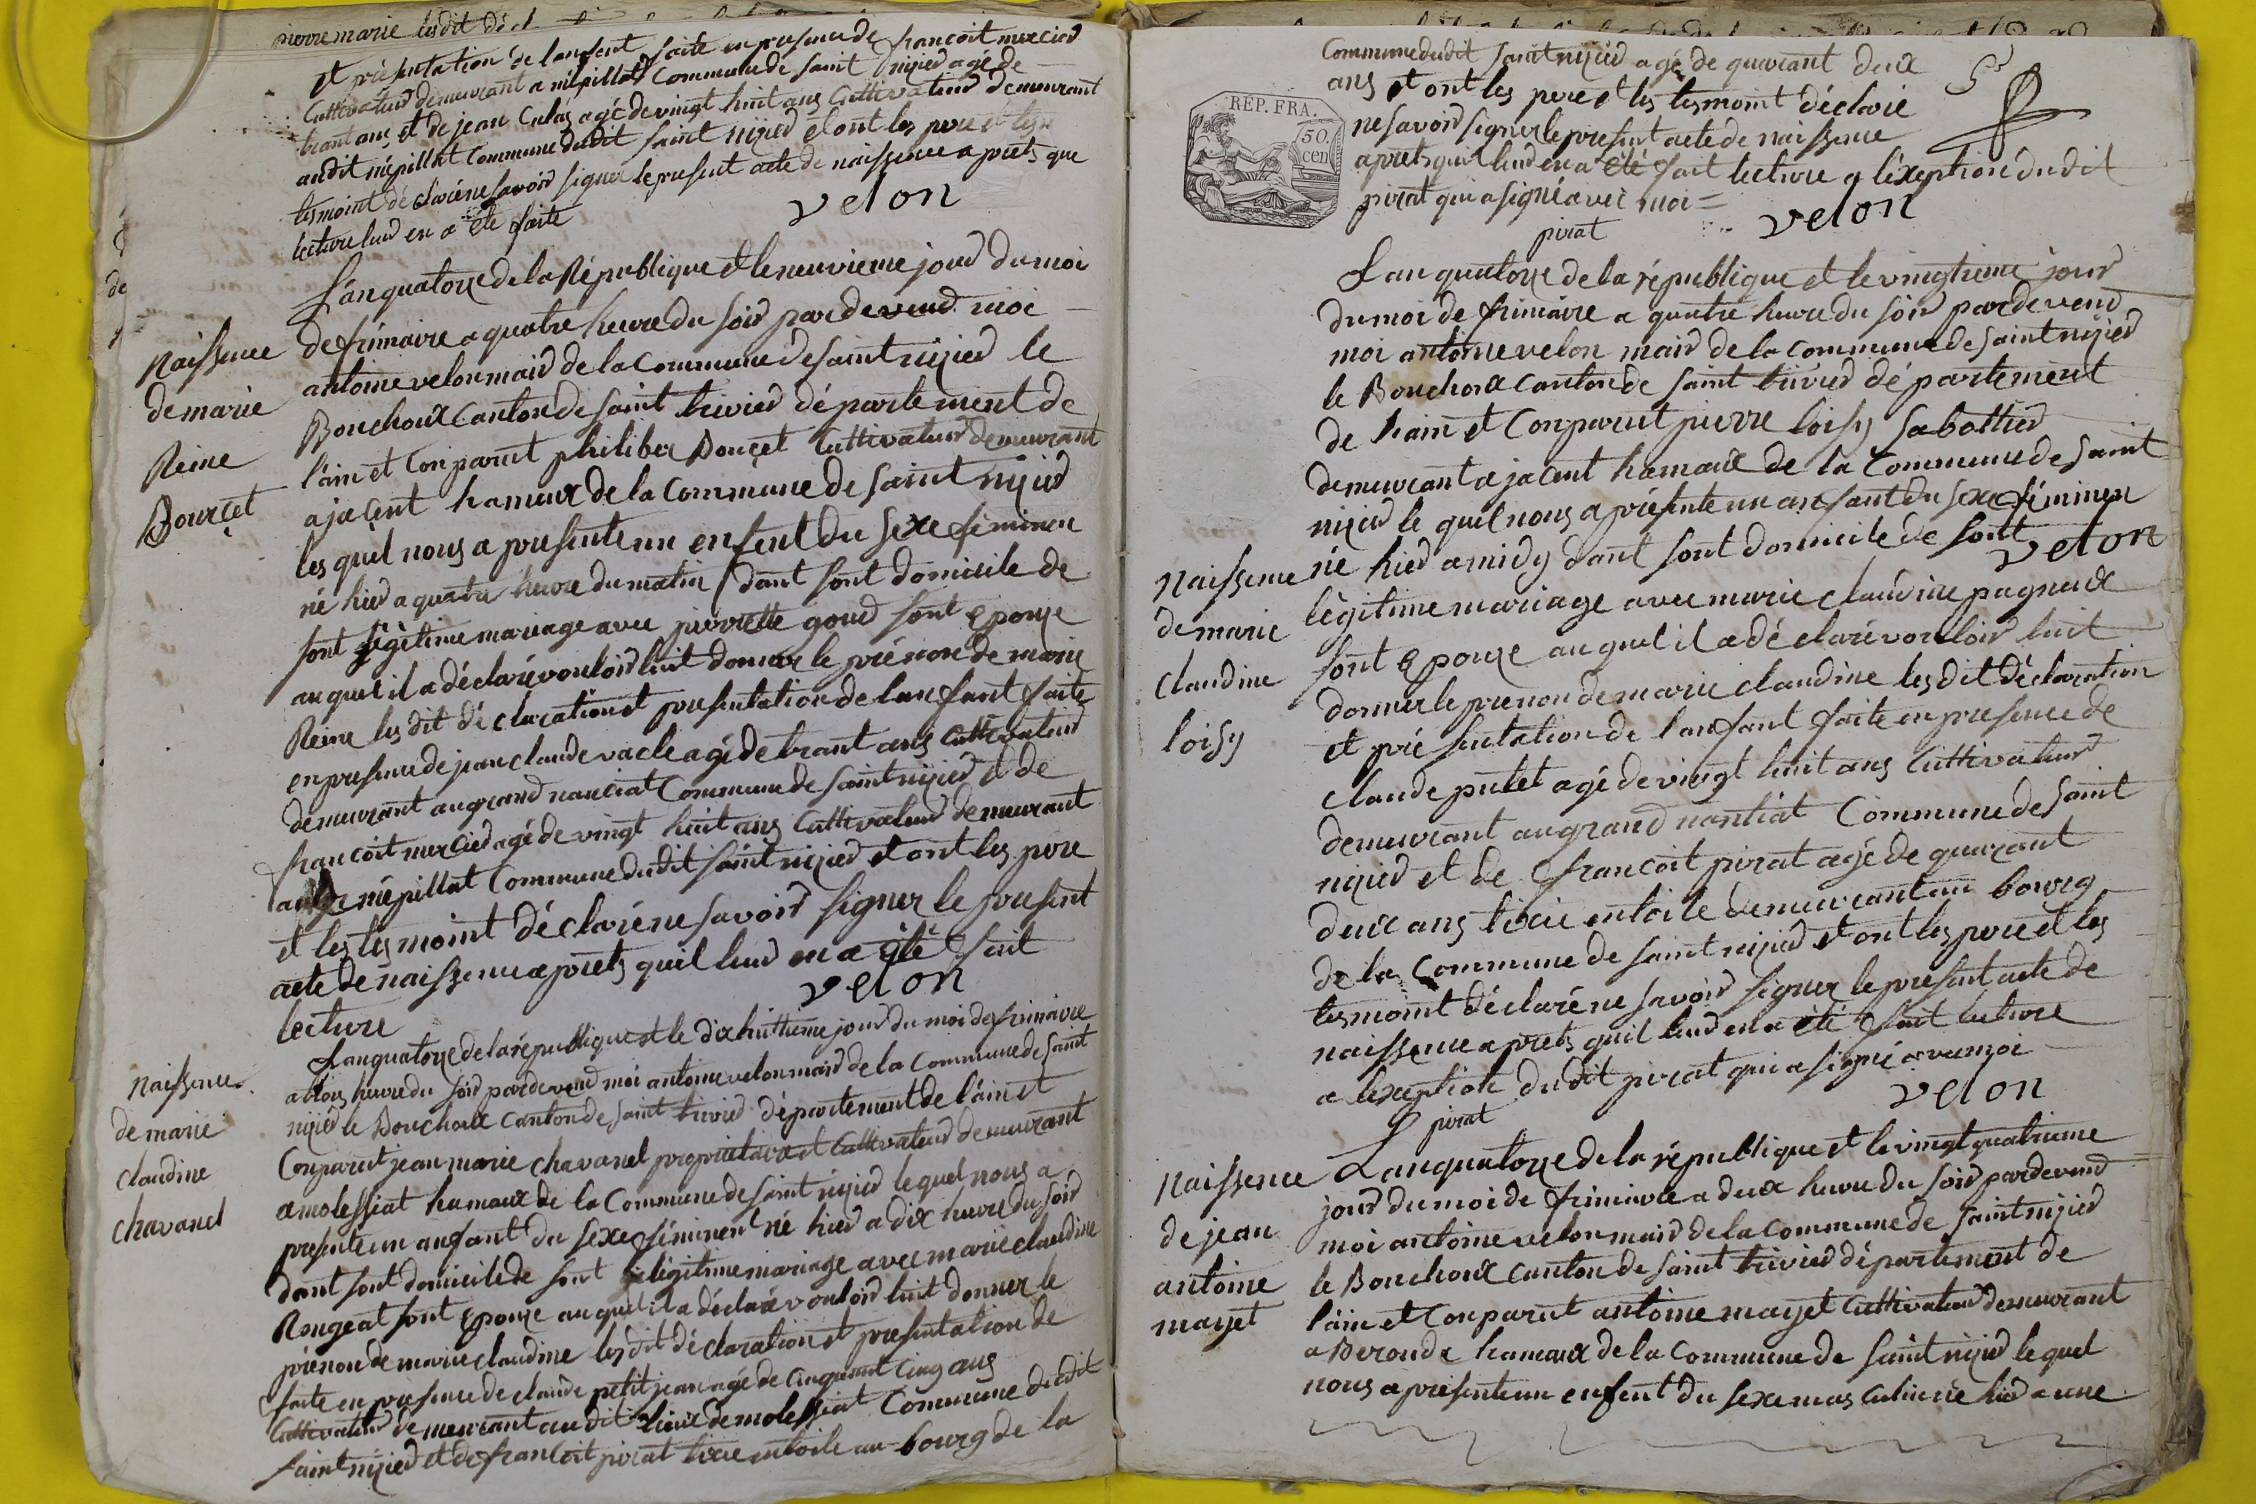 pierre marie les dit
et présentation de lanfent faite en presence de francoit mercied
Cultivateur demeurant a mépillat Commune de saint nijied agé de
trant ans et de jean Calas agé de vingt huit ans Cultivateur demeurant
audit mépillat Commune dudit saint nijied et ont les pere et les
tesmoint déclaréne savoir signer le present acte de naissence aprets que
lecture leud en a été faite
velon
Naissence
de marie
Reine
Bourçet
L'an quatorze de la République et le neuvieme joud du moi
de frimaire a quatre heure du soir pardevend moi
antoine velon maid de la Commune de saint nijied le
Bouchoux Canton de saint trivied département de
l'ain et Conparut philiber Bourçet Cultivateur demeurant
a jacent hameux de la Commune de saint nijied
les quel nous a presente un enfent du sexe féminen
né hied a quatre heure du matin dant sont domicile de
sont légitime mariage avec pierrette goud sont Epouze
auquel il a déclaré vouloir luit donner le prénon de marie
Reine les dit déclaration et presentation de lanfant faite
en presence de jean claude vacle agé de trant ans Cultivateur
demeurant au grand nanciat Commune de saint nijied et de
francoit mercied agé de vingt huit ans Cultivateur demeurant
au mépillat Commune dudit saint nijied et ont les pere
et les tesmoint déclaréne savoir signer le present
acte de naissence aprets quil leud en a été fait
lecture
velon
Naissence
de marie
claudine
chavanel
L'an quatorze de la république et le dix huittieme jour du moi de frimaire
a trois heure du soir pardevend moi antoine velon maid de la Commune de saint
nijied le Bouchoux Canton de saint trivied département de l'ain et
Conparut jean marie chavanel proprietaire et Cultivateur demeurant
a molessiat hamaux de la Commune de saint nijied lequel nous a
presenté un anfant du sexe féminen né hied a dix heure du soir
dant sont domicile de sont légitime mariage avec marie claudine
Rongeat sont Epouze auquel il a déclaré vouloir luit donner le
prénon de marie claudine les dit déclaration et presentation de
faite en presence de claude petit jean agé de Cinquant Cinq ans
Cultivateur demeurant au dit lieux de molessiat Commune dudit
saint nijied et de francoit pirat tixie entoile au bourg de la
Commune dudit saint nijied agé de quarant deux
ans et ont les pere et les tesmoint déclaré
ne savoir signer le present acte de naissence
aprets quil leud en a été fait lecture a l'éxeption dudit
pirat qui a signé avec moi =
pirat
velon
RÉP. FRA.
50.
cen
L'an quatorze de la république et le vingtieme jour
du moi de frimaire a quatre heure du soir pardevend
moi antoine velon maid de la commune de saint nijied
le Bouchoux Canton de saint trivied département
de l'ain et Conparut pierre loisy sabottier
demeurant a jacent hamaux de la Commune de saint
nijied le quel nous a présente un anfant du sexe féminen
né hied a midy dant sont domicile de sont
velon
Naissence
de marie
claudine
loisy
légitime mariage avec marie claudine pagneux
sont Epouze auquel il a déclaré vouloir luit
donner le prenon de marie claudine les dit déclaration
et présentation de lanfant faite en presence de
claude putet agé de vingt huit ans Cultivateur
demeurant au grand nantiat Commune de saint
nijied et de francoit pirat agé de quarant
deux ans tixie entoile demeurant au bourg
de la Commune de saint nijied et ont les pere et les
tesmoint déclaréne savoir signer le present acte de
naissence aprets quil leud en a été fait lecture
a lexeption du dit pirat qui a signé avec moi
pirat
velon
Naissence
de jean
antoine
mayet
L'an quatorze de la république et le vingt quatrieme
jour du moi de frimaire a deux heure du soir pardevend
moi antoine velon maid de la commune de saint nijied
le Bouchoux canton de saint trivied département de
l'ain et Conparut antoine mayet Cultivateur demeurant
a Beronde hamaux de la Commune de saint nijied le quel
nous a présente un enfent du sexe masculin né hied a une